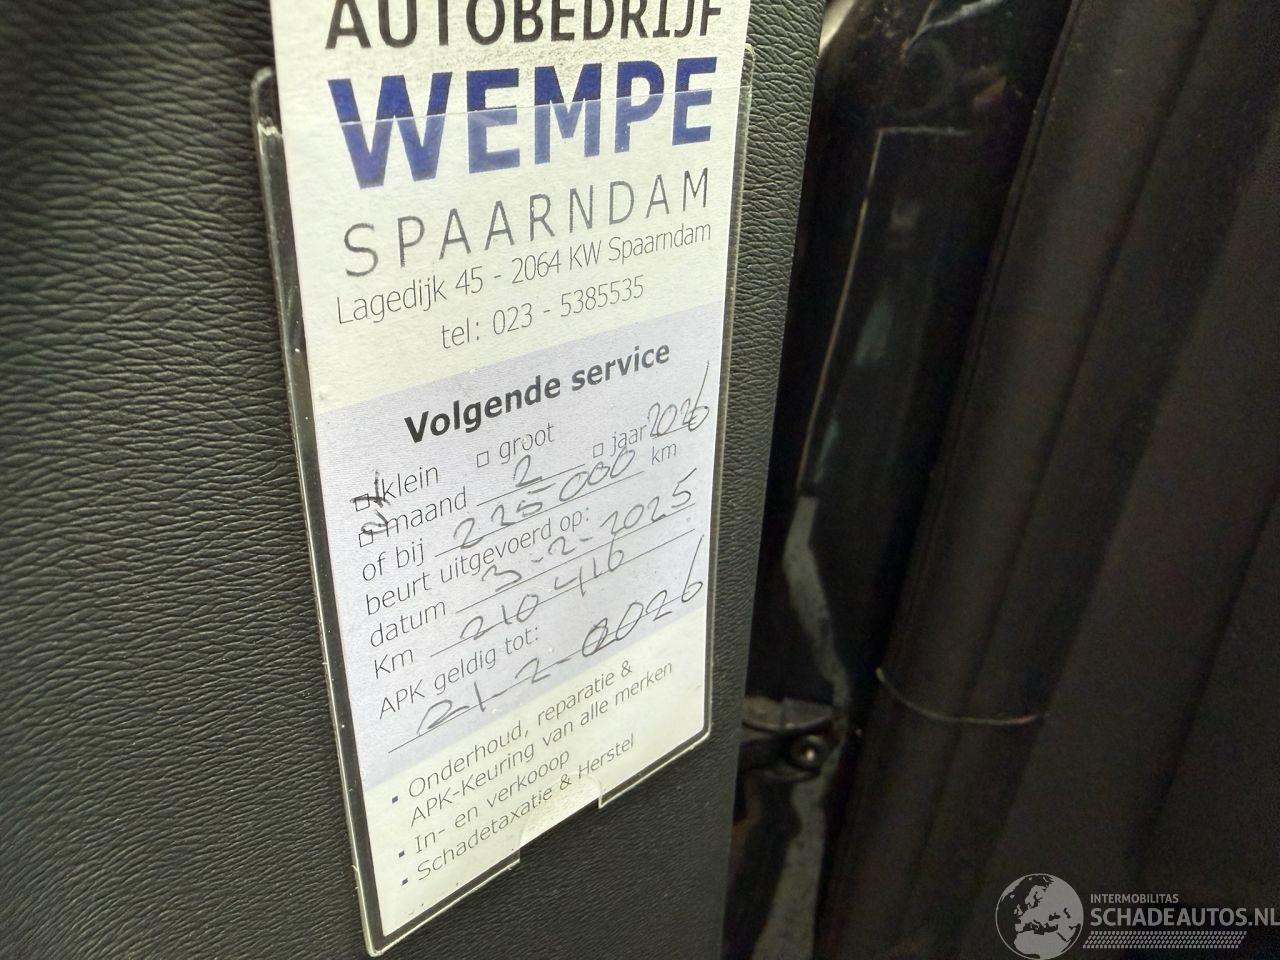 AUTOBEDRIJF
WEMPE
SPAARNDAM
Lagedijk 45 - 2064 KW Spaarndam
tel: 023 - 5385535
Volgende service
klein □ groot
maand 2 □ jaar 2026
of bij 225000 km
beurt uitgevoerd op:
datum 3-2-2025
Km 210 416
APK geldig tot:
21-2-2026
• Onderhoud, reparatie &
APK-Keuring van alle merken
• In- en verkooop
• Schadetaxatie & Herstel
INTERMOBILITAS
SCHADEAUTOS.NL